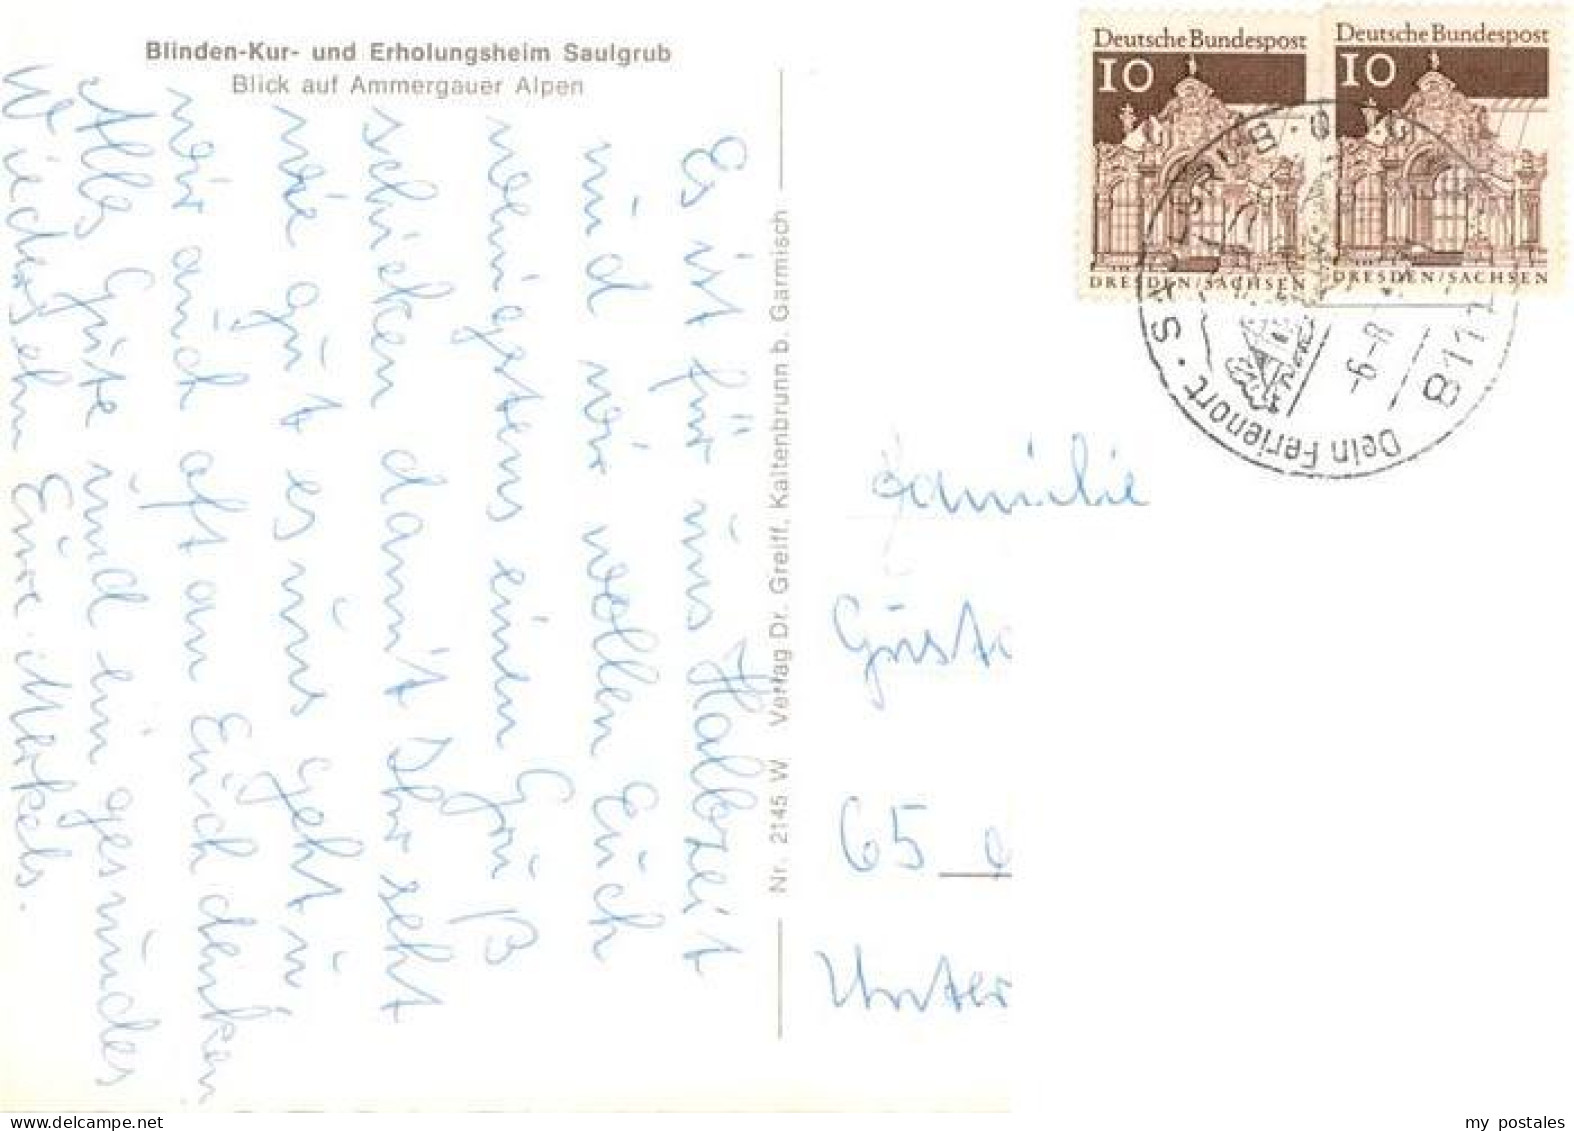 Blinden-Kur- und Erholungsheim Saulgrub
Blick auf Ammergauer Alpen
Es ist für uns Halbzeit
und wir wollen Euch
wenigstens einen Gruß
schicken damit Ihr seht
wie gut es uns geht u
wir auch oft an Euch denken
Alles Gute und ein gesundes
Wiedersehn Eure Merkels.
Nr. 2145 W Verlag Dr. Greiff, Kaltenbrunn b. Garmisch
Deutsche Bundespost
10
DRESDEN/SACHSEN
Deutsche Bundespost
10
DRESDEN/SACHSEN
8111
Dein Ferienort
-6.-8
Familie
65
Unter
my postales